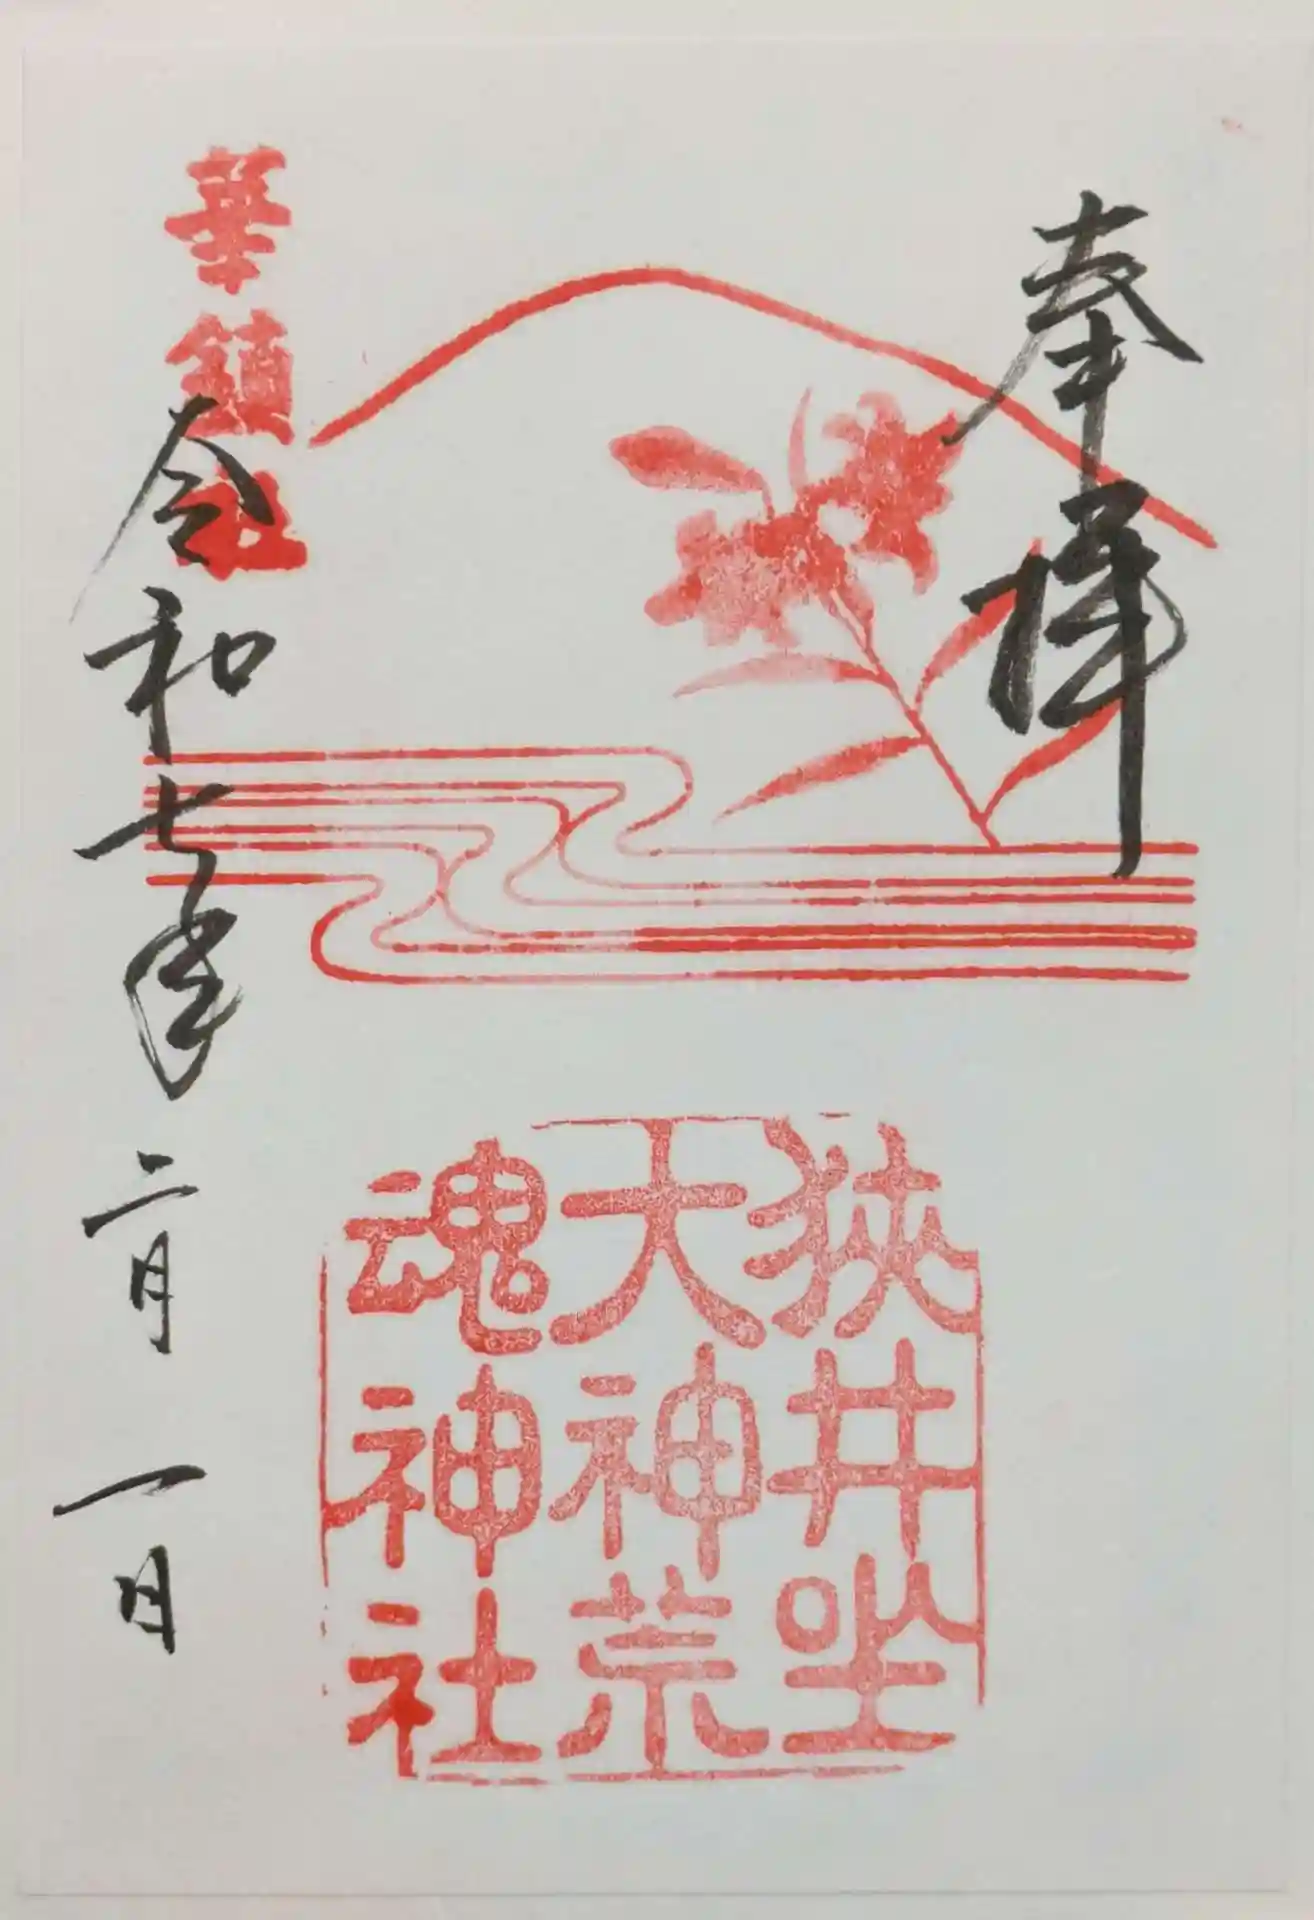 奉拝
狭井坐
大神荒
魂神社
華鎮社
令和七年二月一日